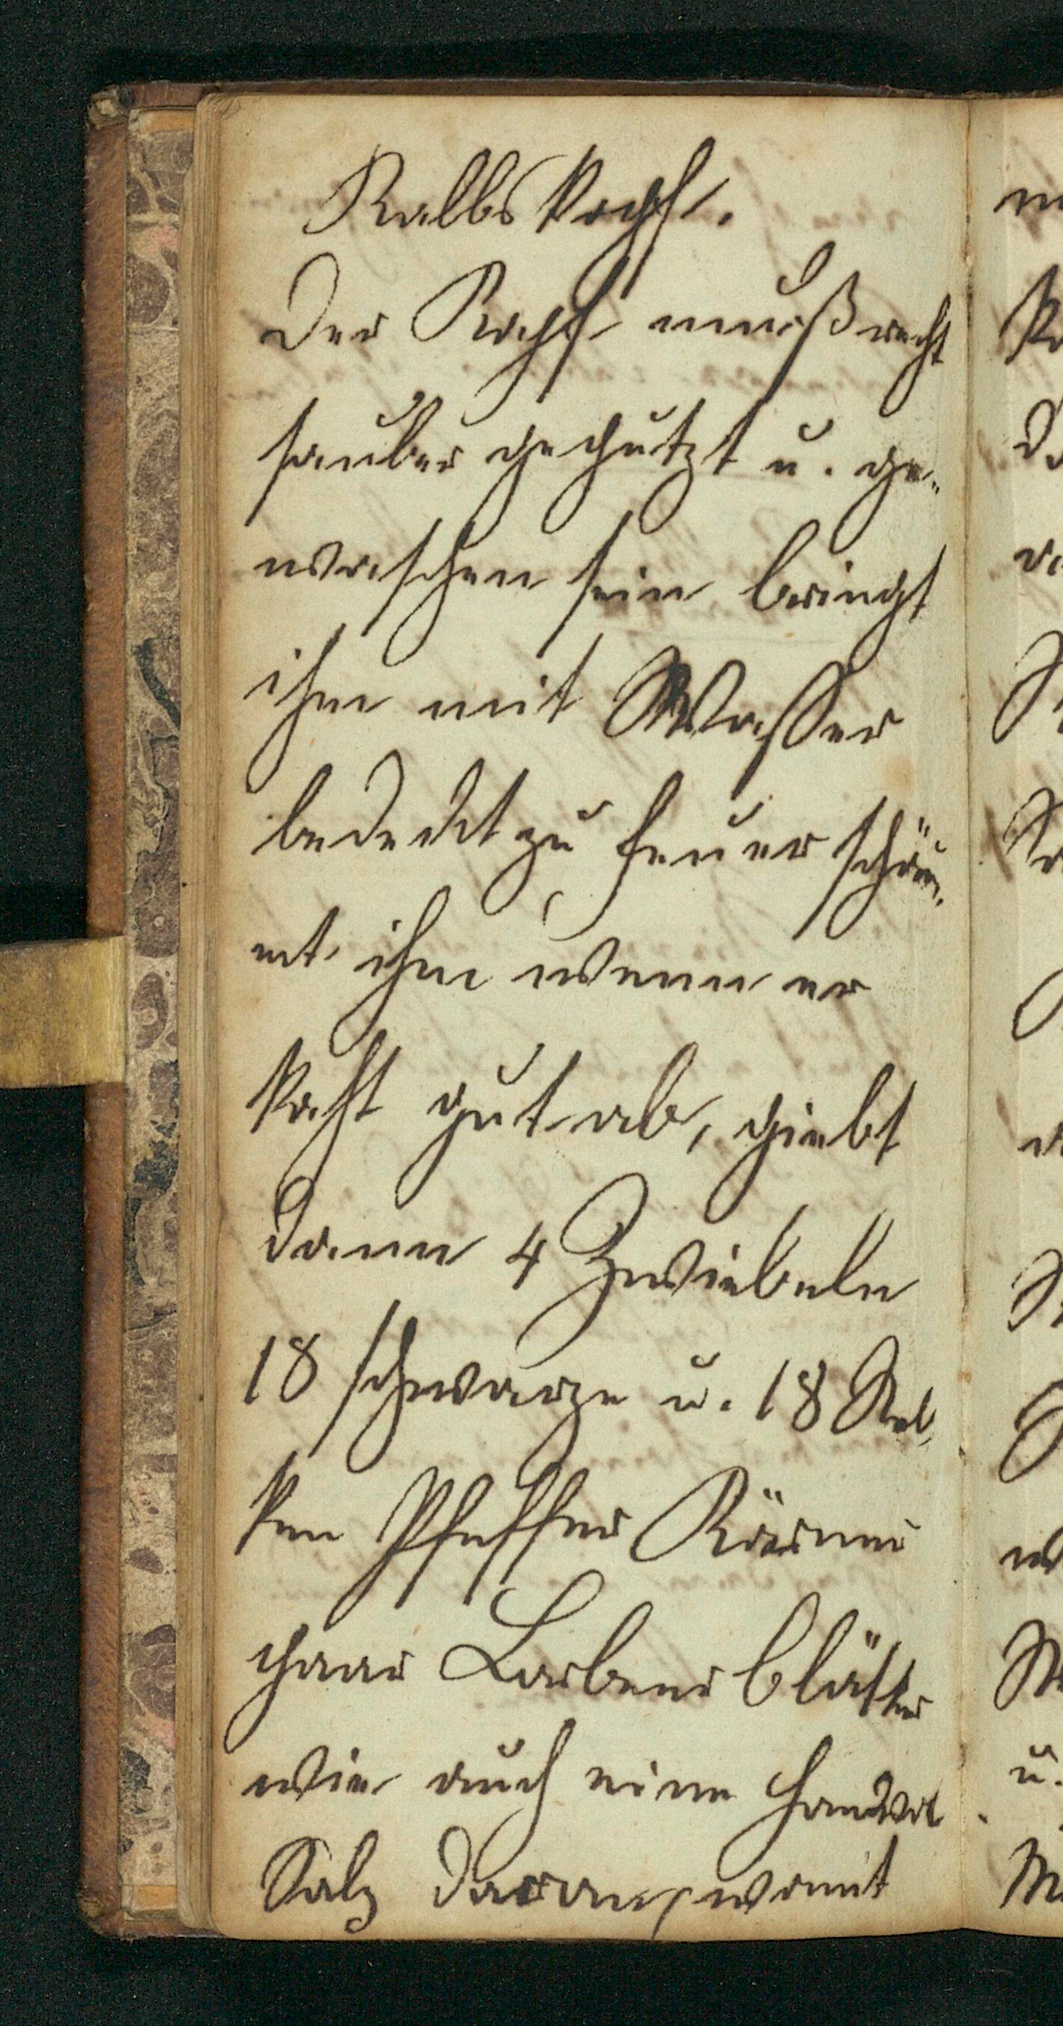 Kalbskopf.
Der Kopf muß recht
sauber geputzt u. ge-
waschen sein bringt
ihm mit Wasser
bedeckt zu Feuer schäu-
mt ihm wenn er
kocht gut ab, giebt
dann 4 Zwiebeln
18 schwarze u. 18 Nel-
ken Pfeffer Körner
paar Lorbeer blätter
wie auch eine Handvol
Salz daran, womit